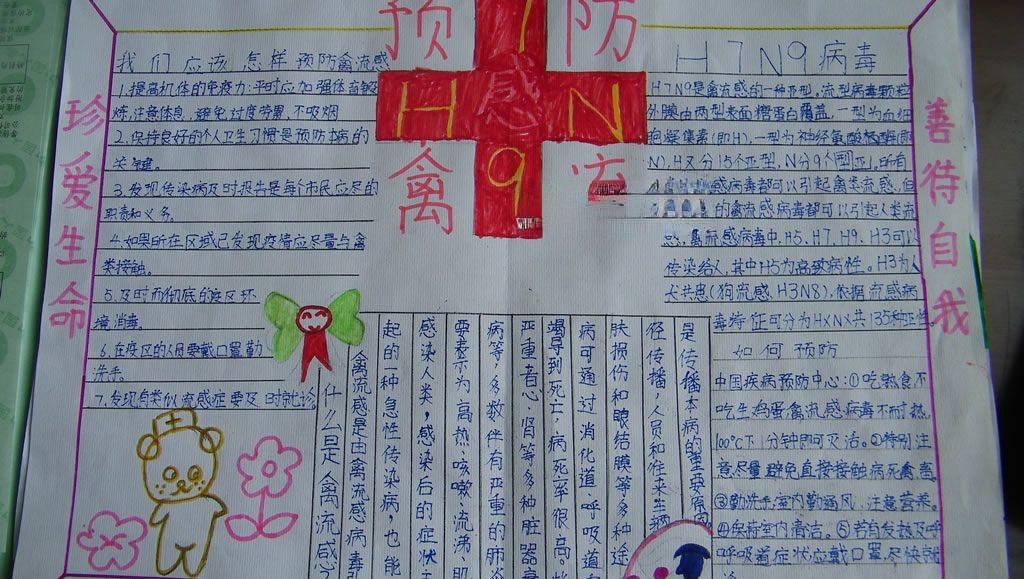 预
防
禽
H
7
感
N
9
珍爱生命
善待自我
我们应该怎样预防禽流感
1.提高机体的免疫力:平时应加强体育锻
炼,注意休息,避免过度劳累,不吸烟
2.保持良好的个人卫生习惯是预防本病的
关键。
3.发现传染病及时报告是每个市民应尽的
职责和义务。
4.如果所在区域已发现疫情应尽量与禽
类接触。
5.及时而彻底的疫区环
境消毒。
6.在疫区的人员要戴口罩勤
洗手。
7.发现自类似流感症要及时就诊。
什么是禽流感
禽流感是由禽流感病毒引
起的一种急性传染病,也能
感染人类,感染后的症状
要表示为高热、咳嗽、流涕、肌
病等,多数伴有严重的肺炎
严重者心、肾等多种脏器衰
竭导到死亡,病死率很高。
病可通过消化道、呼吸道
肤损伤和眼结膜等多种途
径传播,人员和
是传播本病的
H7N9病毒
H7N9是禽流感的一种亚型,流型病毒颗粒
外膜由两型表面糖蛋白覆盖,一型为血细
胞凝集素(即H),一型为神经氨酸糖酶(即
N),H又分15个亚型,N分9个型亚。所有
感病毒都可以引起禽类流感,但
的禽流感病毒都可以引起人类流
感,禽流感病毒中,H5、H7、H9、H3可以
传染给人,其中H5为高致病性。H3为人
犬共患(狗流感,H3N8),依据流感病
毒特征可分为HXNX共135种亚性。
如何预防
中国疾病预防中心:①吃熟食不
吃生鸡蛋禽流感病毒不耐热,
100℃下1分钟即可灭活。②特别注
意尽量避免直接接触病死禽畜
③勤洗手,室内勤通风,注意营养。
④保持室内清洁。⑤若有发热及呼
呼吸道症状应戴口罩尽快就